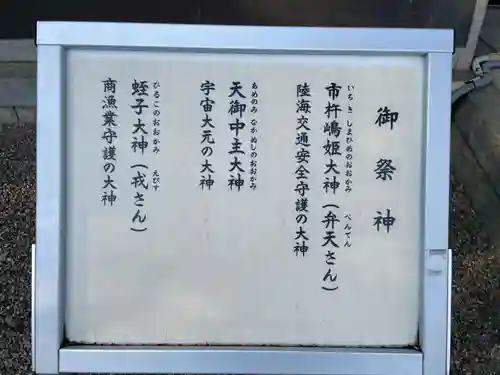 御祭神
市杵嶋姫大神（弁天さん）
いちきしまひめのおおかみ べんてん
陸海交通安全守護の大神
天御中主大神
あめのみなかぬしのおおかみ
宇宙大元の大神
蛭子大神（戎さん）
ひるこのおおかみ えびす
商漁業守護の大神